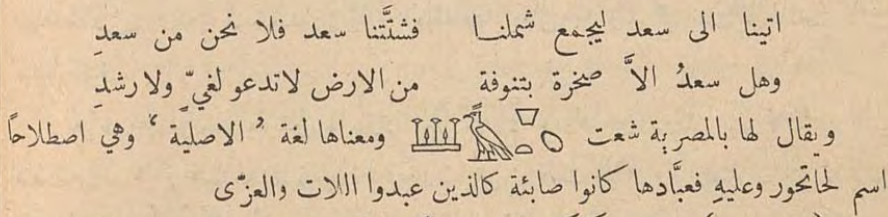 اتينا الى سعد ليجمع شملنا فشتَّتنا سعد فلا نحن من سعدِ
وهل سعدُ الاَّ صخرة بتنوفة من الارض لا تدعو لغيّ ولا رشدِ
ويقال لها بالمصرية شعت ومعناها لغة " الاصلية " وهي اصطلاحاً
اسم لحاتحور وعليهِ فعبَّادها كانوا صابئة كالذين عبدوا اللات والعزّى